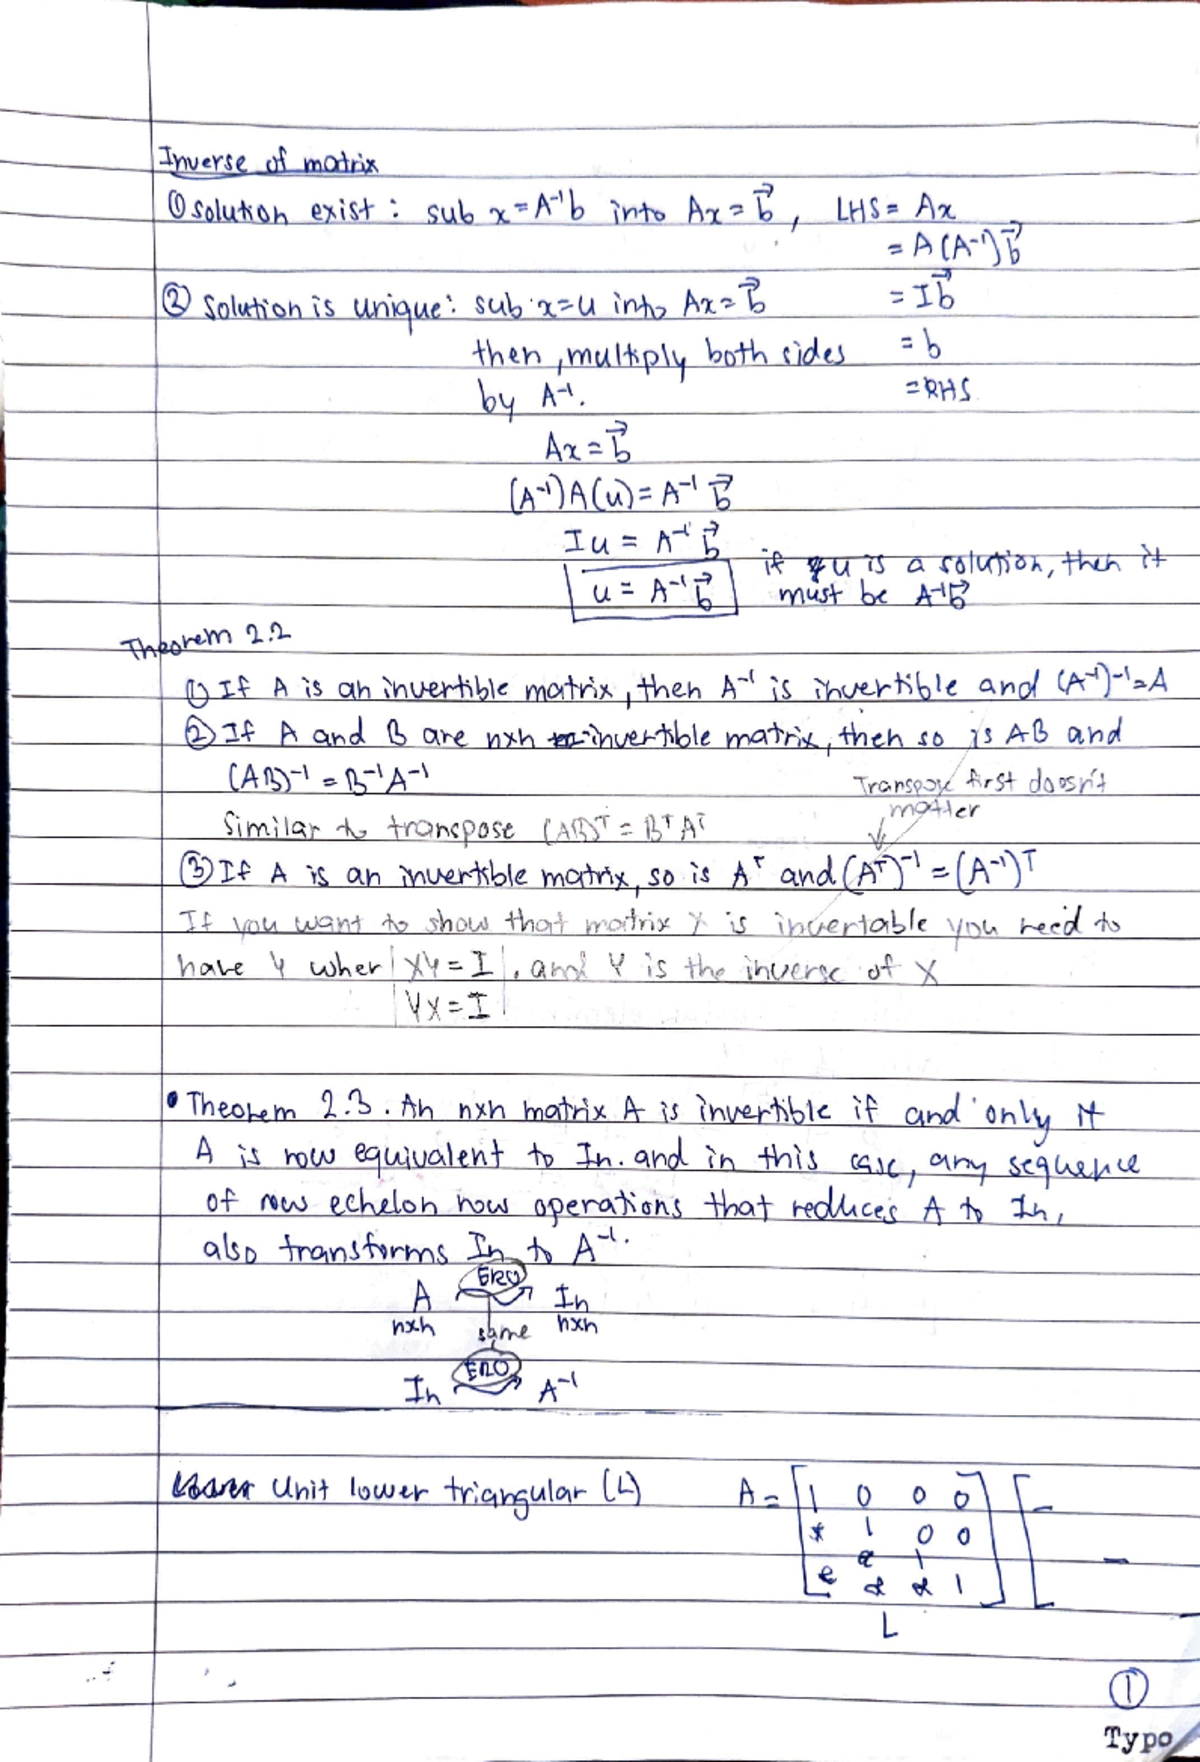 Inverse of matrix
① Solution exist : sub x = A⁻¹b into Ax = b⃗ , LHS = Ax
= A(A⁻¹)b⃗
② Solution is unique : sub x=u into Ax = b⃗
= Ib⃗
then, multiply both sides
= b
by A⁻¹.
= RHS
Ax = b⃗
(A⁻¹)A(u) = A⁻¹ b⃗
Iu = A⁻¹ b⃗
u = A⁻¹ b⃗
if u is a solution, then it
must be A⁻¹b⃗
Theorem 2.2
① If A is an invertible matrix, then A⁻¹ is invertible and (A⁻¹)⁻¹=A
② If A and B are nxn invertible matrix, then so is AB and
(AB)⁻¹ = B⁻¹A⁻¹
Transpose first doesn't
matter
Similar to transpose (AB)ᵀ = Bᵀ Aᵀ
③ If A is an invertible matrix, so is Aᵀ and (Aᵀ)⁻¹ = (A⁻¹)ᵀ
If you want to show that matrix X is invertable you need to
have Y wher XY = I , and Y is the inverse of X
YX = I
• Theorem 2.3. An nxn matrix A is invertible if and only it
A is row equivalent to In. and in this case, any sequence
of row echelon row operations that reduces A to In,
also transforms In to A⁻¹.
A ERO In
nxn same nxn
In ERO A⁻¹
Unit lower triangular (L)
A = [1 0 0 0] [
* 1 0 0
1
1
L
①
Typo